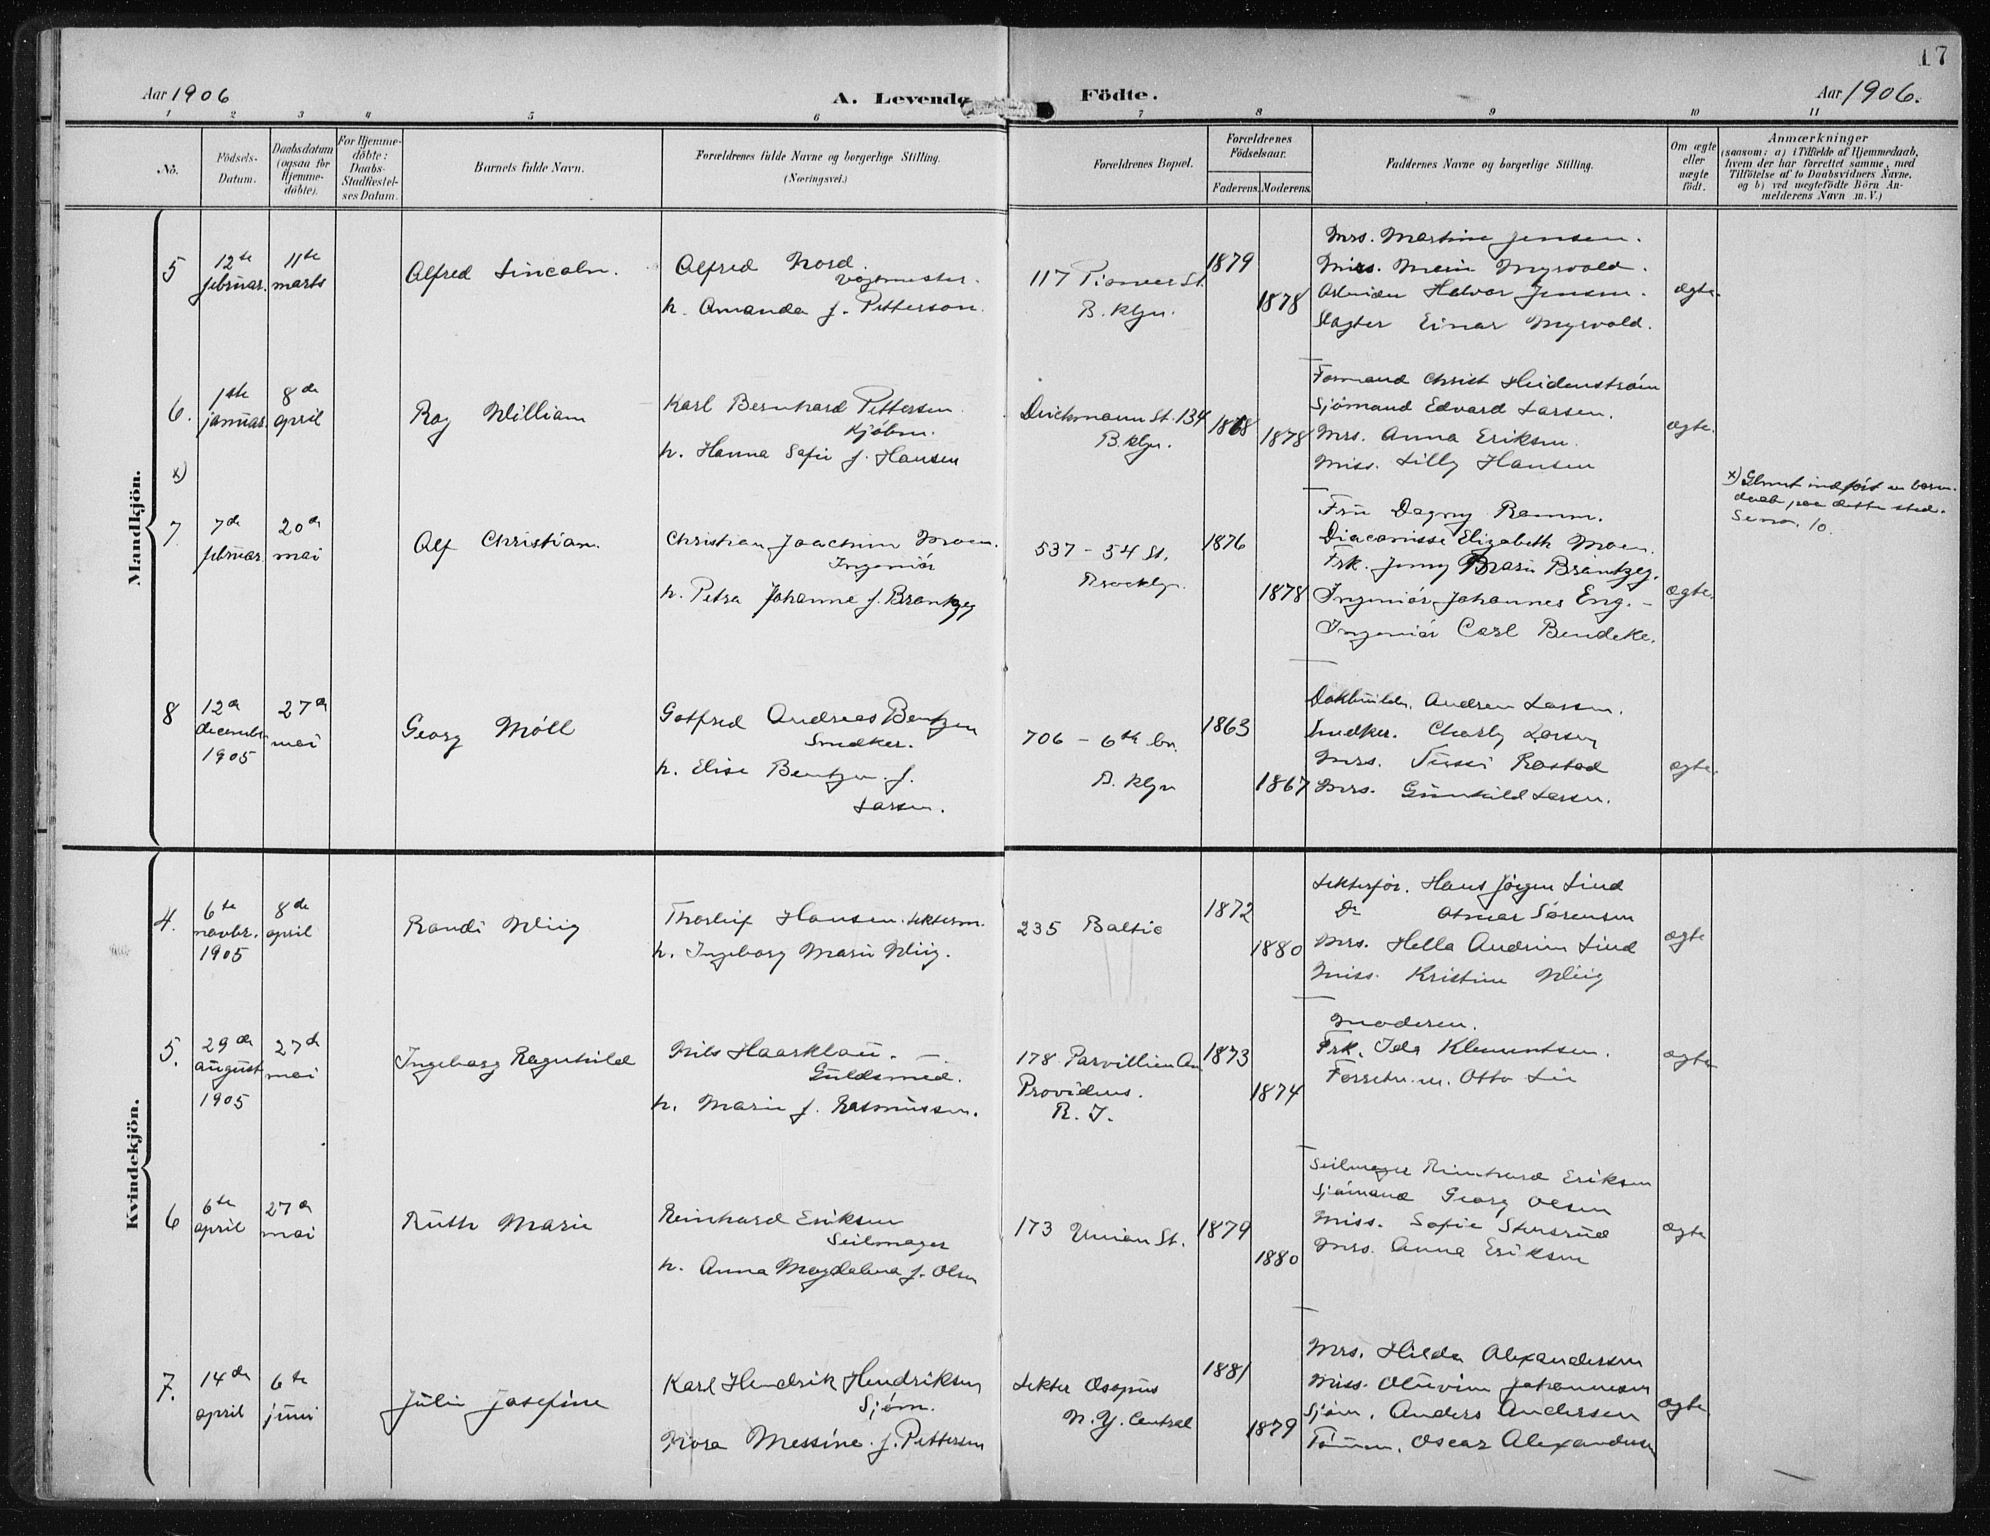 17
Aar 1906
A. Levende
Födte.
Aar 1906.
1 2 3 4 5 6 7 8 9 10 11
No.
Födsels-
Datum.
Daabsdatum
(ogsaa for
Hjemme-
döbte).
For Hjemme-
döbte:
Daabs-
Stadfæstel-
ses Datum.
Barnets fulde Navn.
Forældrenes fulde Navne og borgerlige Stilling.
(Næringsvei.)
Forældrenes Bopæl.
Forældrenes
Födselsaar.
Faderens. Moderens.
Faddernes Navne og borgerlige Stilling.
Om ægte
eller
uægte
födt.
Anmærkninger
(saasom: a) i Tilfælde af Hjemmedaab,
hvem der har forrettet samme, med
Tilföielse af to Daabsvidners Navne,
og b) ved uægtefödte Börn An-
melderens Navn m. V.)
Mandkjön.
5
12te
februar.
11te
marts
Alfred Lincoln.
Alfred Nord
h. Amanda f. Petterson.
117 Pioneer St.
B.klyn.
1879
1878
Mrs. Martine Jensen.
Mrs. Marie Myrvold.
Arbeider Halvor Jensen.
Slagter Einar Myrvold.
ægte.
6.
1ste
januar.
8de
april
Roy William
Karl Bernhard Pettersen
Kjøbm.
h. Hanna Sofie f. Hansen
134
B.klyn.
1868
1878
Formand Christ Heidenstrøm
Sjömand Edvard Larsen.
Mrs. Anna Eriksen.
Miss. Lilly Hansen
ægte.
x)
x) Glemt indført en barne-
daab paa dette sted.
Se no. 10.
7
7de
februar
20de
mai
Alf Christian.
Christian Joachim Moen.
Ingeniör
h. Petra Johanne f. Brantzeg
537 - 54 St.
Brooklyn.
1876
1878
Fru Dagny Ramm.
Diaconisse Elizabeth Moen.
Frk. Jenny Marie Brantzeg.
Ingeniör Johannes Eng. -
Ingeniör Carl Bendeke.
ægte.
8
12te
decembr.
1905
27de
mai
Georg Möll
Gotfred Andreas Bentzen
Snedker.
h. Elise Bentzen f.
Larsen.
706 - 6th av.
B.klyn
1863
1867
Dokbuilder. Andrew Larsen.
Snedker. Charly Larsen
Mrs. Rostad
Mrs. Gunhild Larsen.
ægte.
Kvindekjön.
4.
6te
novbr.
1905
8de
april
Randi Wiig
Thorleif Hansen. lekterm.
h. Ingeborg Marie Wiig.
235 Baltic
1872
1880
Lekterför. Hans Jörgen Lind
Do Otmar Sørensen
Mrs. Hella Andrine Lind
Miss. Kristine Wiig
ægte
5.
29de
august
1905
27d
mai
Ingeborg Ragnhild
Nils Haarklau.
Guldsmed.
h. Marie f. Rasmussen.
178
Providens.
R. I.
1873
1874
Moderen.
Frk. Ida Klementsen.
Forretn.m. Otto Lie
ægte
6
6te
april
27de
mai
Ruth Marie
Reinhard Eriksen
Seilmager
h. Anna Magdalena f. Olsen
173 Union St.
1879
1880
Seilmager Reinhard Eriksen
Sjömand Georg Olsen
Miss. Sofie Stensrud
Mrs. Anna Eriksen
ægte
7.
14de
april
6te
juni
Julie Josefine
Karl Hendrik Hendriksen
Sjöm.
Nora Messine f. Pettersen
Lekter Osopus
N.Y. Central
1881
1879
Mrs. Hilda Alexandersen
Miss. Oluvine Johannesen
Sjöm. Anders Andersen
Tömm. Oscar Alexandersen
ægte